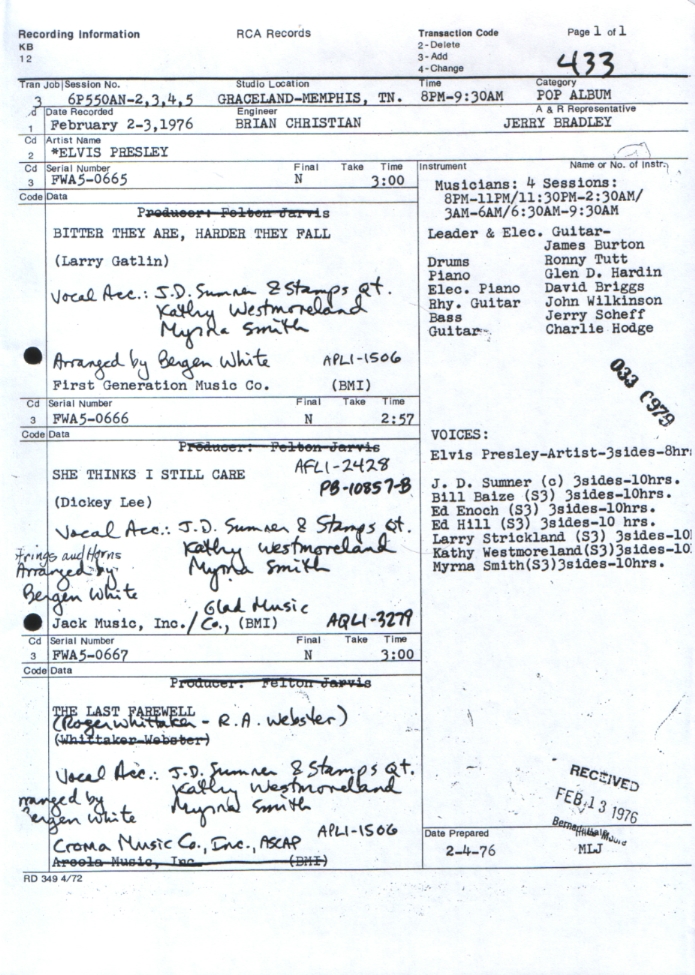 Recording Information
KB
12
RCA Records
Transaction Code
2-Delete
3-Add
4-Change
Page 1 of 1
433
Tran Job Session No.
3 6P550AN-2,3,4,5
Studio Location
GRACELAND-MEMPHIS, TN.
Time
8PM-9:30AM
Category
POP ALBUM
Date Recorded
1 February 2-3,1976
Engineer
BRIAN CHRISTIAN
A & R Representative
JERRY BRADLEY
Cd Artist Name
2 *ELVIS PRESLEY
Cd Serial Number Final Take Time
3 FWA5-0665 N 3:00
Code Data
Producer: Felton Jarvis
BITTER THEY ARE, HARDER THEY FALL
(Larry Gatlin)
Vocal Acc.: J.D. Sumner & Stamps Qt.
Kathy Westmoreland
Myrna Smith
Arranged by Bergen White APL1-1506
First Generation Music Co. (BMI)
Cd Serial Number Final Take Time
3 FWA5-0666 N 2:57
Code Data
Producer: Felton Jarvis
SHE THINKS I STILL CARE AFL1-2428
PB-10857-B
(Dickey Lee)
Vocal Acc.: J.D. Sumner & Stamps Qt.
Kathy Westmoreland
Myrna Smith
trings and Horns
Arranged by
Bergen White
Glad Music
Jack Music, Inc./ Co., (BMI) AQL1-3279
Cd Serial Number Final Take Time
3 FWA5-0667 N 3:00
Code Data
Producer: Felton Jarvis
THE LAST FAREWELL
(Roger Whittaker - R.A. Webster)
(Whittaker-Webster)
Vocal Acc.: J.D. Sumner & Stamps Qt.
Kathy Westmoreland
Myrna Smith
rranged by
Bergen White
APL1-1506
Croma Music Co., Inc., ASCAP
Areola Music, Inc. (BMI)
RD 349 4/72
Instrument Name or No. of Instr.
Musicians: 4 Sessions:
8PM-11PM/11:30PM-2:30AM/
3AM-6AM/6:30AM-9:30AM
Leader & Elec. Guitar-
James Burton
Drums Ronny Tutt
Piano Glen D. Hardin
Elec. Piano David Briggs
Rhy. Guitar John Wilkinson
Bass Jerry Scheff
Guitar- Charlie Hodge
VOICES:
Elvis Presley-Artist-3sides-8hr
J. D. Sumner (c) 3sides-10hrs.
Bill Baize (S3) 3sides-10hrs.
Ed Enoch (S3) 3sides-10hrs.
Ed Hill (S3) 3sides-10 hrs.
Larry Strickland (S3) 3sides-10
Kathy Westmoreland(S3)3sides-10
Myrna Smith(S3)3sides-10hrs.
RECEIVED
FEB 13 1976
Date Prepared
2-4-76 MLJ